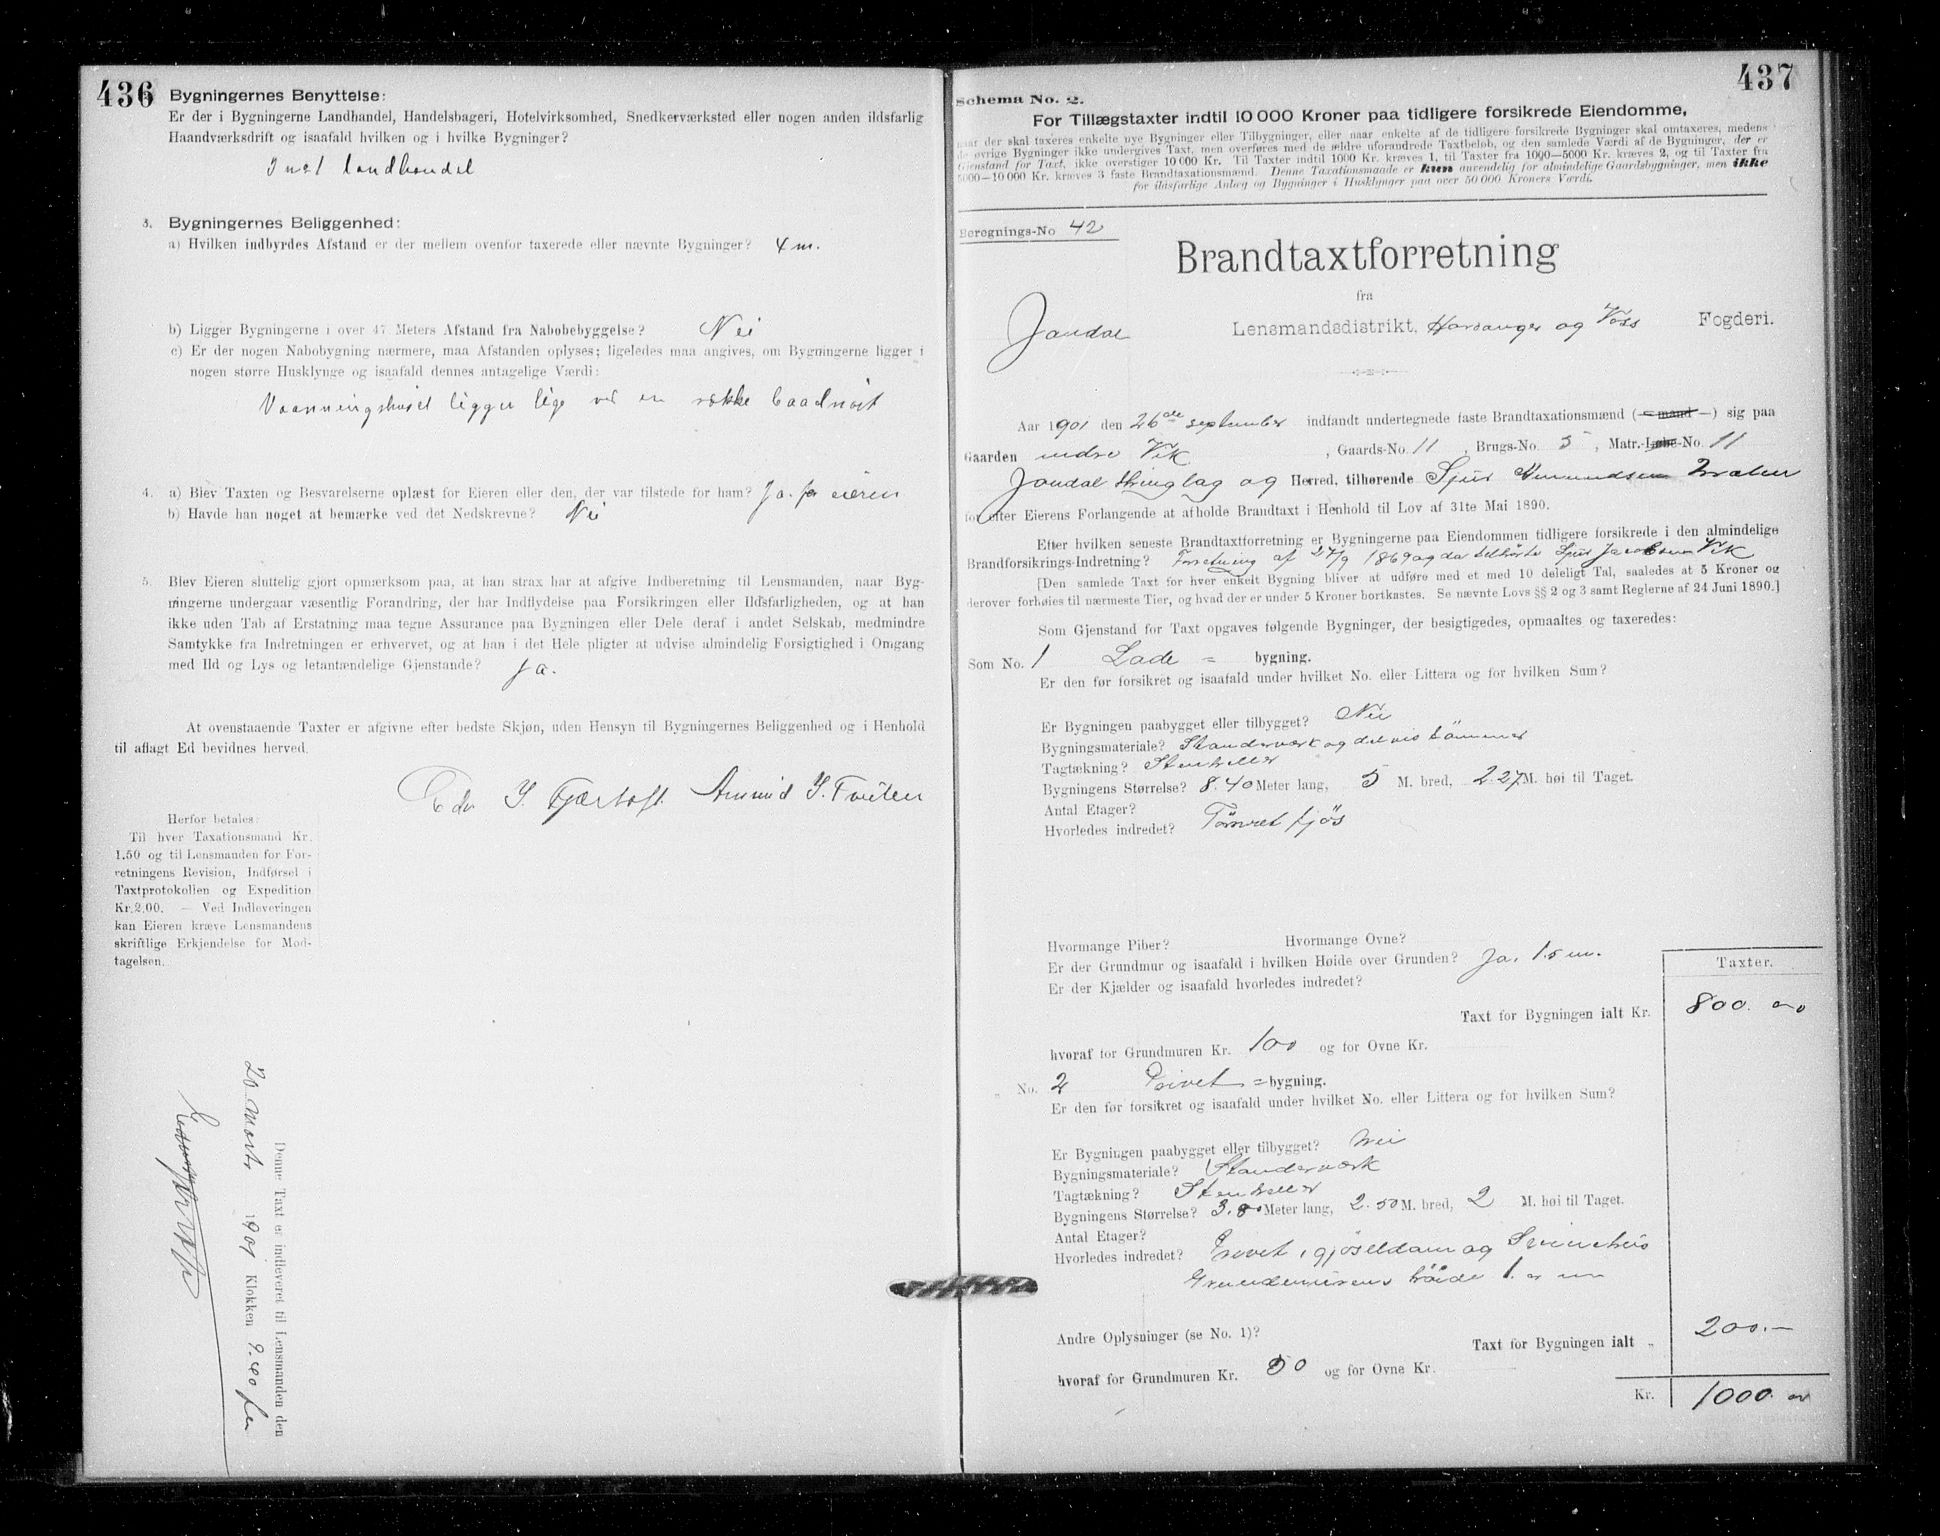 436
Bygningernes Benyttelse:
Er der i Bygningerne Landhandel, Handelsbageri, Hotelvirksomhed, Snedkerværksted eller nogen anden ildsfarlig
Haandværksdrift og isaafald hvilken og i hvilke Bygninger?
landhandel
3. Bygningernes Beliggenhed:
a) Hvilken indbyrdes Afstand er der mellem ovenfor taxerede eller nævnte Bygninger? 4 m.
b) Ligger Bygningerne i over 47 Meters Afstand fra Nabobebyggelse? Nei
c) Er der nogen Nabobygning nærmere, maa Afstanden oplyses; ligeledes maa angives, om Bygningerne ligger i
nogen større Husklynge og isaafald dennes antagelige Værdi:
Vaanningshuset ligger lige ved en række baadnöst
4. a) Blev Taxten og Besvarelserne oplæst for Eieren eller den, der var tilstede for ham? Ja. for eieren
b) Havde han noget at bemærke ved det Nedskrevne? Nei
5. Blev Eieren sluttelig gjort opmærksom paa, at han strax har at afgive Indberetning til Lensmanden, naar Byg-
ningerne undergaar væsentlig Forandring, der har Indflydelse paa Forsikringen eller Ildsfarligheden, og at han
ikke uden Tab af Erstatning maa tegne Assurance paa Bygningen eller Dele deraf i andet Selskab, medmindre
Samtykke fra Indretningen er erhvervet, og at han i det Hele pligter at udvise almindelig Forsigtighed i Omgang
med Ild og Lys og letantændelige Gjenstande? Ja.
At ovenstaaende Taxter er afgivne efter bedste Skjøn, uden Hensyn til Bygningernes Beliggenhed og i Henhold
til aflagt Ed bevidnes herved.
Amund
Herfor betales:
Til hver Taxationsmand Kr.
1.50 og til Lensmanden for For-
retningens Revision, Indførsel i
Taxtprotokollen og Expedition
Kr. 2.00. — Ved Indleveringen
kan Eieren kræve Lensmandens
skriftlige Erkjendelse for Mod-
tagelsen.
Denne Taxt er indleveret til Lensmanden den
20 Marts 1901 Klokken 9.40
437
Schema No. 2.
For Tillægstaxter indtil 10 000 Kroner paa tidligere forsikrede Eiendomme,
naar der skal taxeres enkelte nye Bygninger eller Tilbygninger, eller naar enkelte af de tidligere forsikrede Bygninger skal omtaxeres, medens
de øvrige Bygninger ikke undergives Taxt, men overføres med de ældre uforandrede Taxtbeløb, og den samlede Værdi af de Bygninger, der er
Gjenstand for Taxt, ikke overstiger 10 000 Kr. Til Taxter indtil 1000 Kr. kræves 1, til Taxter fra 1000—5000 Kr. kræves 2, og til Taxter fra
5000—10 000 Kr. kræves 3 faste Brandtaxationsmænd. Denne Taxationsmaade er kun anvendelig for almindelige Gaardsbygninger, men ikke
for ildsfarlige Anlæg og Bygninger i Husklynger paa over 50 000 Kroners Værdi.
Beregnings-No 42
Brandtaxtforretning
fra
Jondal Lensmandsdistrikt, Hardanger og Voss Fogderi.
Aar 1901 den 26de september indfandt undertegnede faste Brandtaxationsmænd (— mand —) sig paa
Gaarden indre Vik, Gaards-No. 11, Brugs-No. 5, Matr.-Løbe-No. 11
Jondal thinglag og Herred, tilhørende Sjur Amundsen
for efter Eierens Forlangende at afholde Brandtaxt i Henhold til Lov af 31te Mai 1890.
Efter hvilken seneste Brandtaxtforretning er Bygningerne paa Eiendommen tidligere forsikrede i den almindelige
Brandforsikrings-Indretning? Forretning af 27/9 1869 og da tilhørte Sjur Jacobsen Vik
[Den samlede Taxt for hver enkelt Bygning bliver at udføre med et med 10 deleligt Tal, saaledes at 5 Kroner og
derover forhøies til nærmeste Tier, og hvad der er under 5 Kroner bortkastes. Se nævnte Lovs §§ 2 og 3 samt Reglerne af 24 Juni 1890.]
Som Gjenstand for Taxt opgaves følgende Bygninger, der besigtigedes, opmaaltes og taxeredes:
Som No. 1 Lade = bygning.
Er den før forsikret og isaafald under hvilket No. eller Littera og for hvilken Sum?
Er Bygningen paabygget eller tilbygget? Nei
Bygningsmateriale? Standerværk og delvis tömmer
Tagtækning? Stenheller
Bygningens Størrelse? 8.40 Meter lang, 5 M. bred, 2.27 M. høi til Taget.
Antal Etager?
Hvorledes indredet? fjös
Hvormange Piber? Hvormange Ovne?
Er der Grundmur og isaafald i hvilken Høide over Grunden? Ja, 1.5 m.
Er der Kjælder og isaafald hvorledes indredet?
Taxter.
Taxt for Bygningen ialt Kr. 800.
hvoraf for Grundmuren Kr. 100 og for Ovne Kr.
„ No. 2 Privet = bygning.
Er den før forsikret og isaafald under hvilket No. eller Littera og for hvilken Sum?
Er Bygningen paabygget eller tilbygget? Nei
Bygningsmateriale? Standerværk
Tagtækning? Stenheller
Bygningens Størrelse? 3.80 Meter lang, 2.50 M. bred, 2 M. høi til Taget.
Antal Etager?
Hvorledes indredet? Privet, gjöseldam og Svinehus
Grundmurens höide 1. m
Andre Oplysninger (se No. 1)?
Taxt for Bygningen ialt „ 200.—
hvoraf for Grundmuren Kr. 50 og for Ovne Kr.
Kr. 1000.